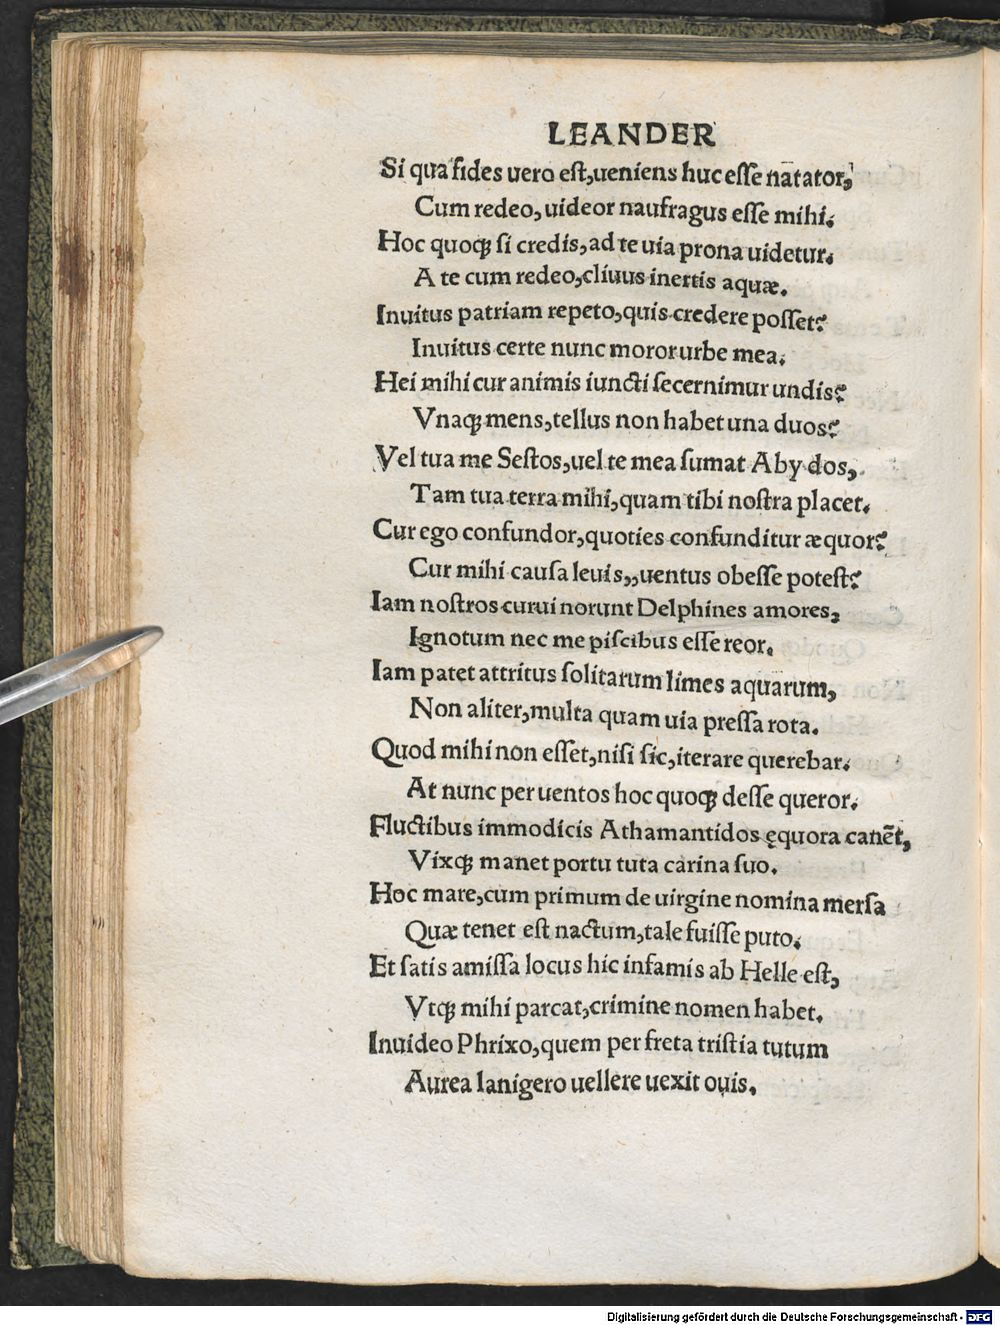 LEANDER
Si qua fides uero est,ueniens huc esse natator,
Cum redeo, uideor naufragus esse mihi.
Hoc quoqꝫ si credis, ad te uia prona uidetur.
A te cum redeo,cliuus inertis aquæ.
Inuitus patriam repeto,quis credere posset?
Inuitus certe nunc moror urbe mea.
Hei mihi cur animis iuncti secernimur undis?
Vnaqꝫ mens,tellus non habet una duos?
Vel tua me Sestos,uel te mea sumat Abydos,
Tam tua terra mihi,quam tibi nostra placet.
Cur ego confundor,quoties confunditur æquor?
Cur mihi causa leuis,,uentus obesse potest?
Iam nostros curui norunt Delphines amores,
Ignotum nec me piscibus esse reor.
Iam patet attritus solitarum limes aquarum,
Non aliter,multa quam uia pressa rota.
Quod mihi non esset,nisi sic,iterare querebar.
At nunc per uentos hoc quoqꝫ desse queror.
Fluctibus immodicis Athamantidos ęquora canēt,
Vixqꝫ manet portu tuta carina suo.
Hoc mare,cum primum de uirgine nomina mersa
Quæ tenet est nactum,tale fuisse puto.
Et satis amissa locus hic infamis ab Helle est,
Vtqꝫ mihi parcat,crimine nomen habet.
Inuideo Phrixo,quem per freta tristia tutum
Aurea lanigero uellere uexit ouis.
Digitalisierung gefördert durch die Deutsche Forschungsgemeinschaft - DFG